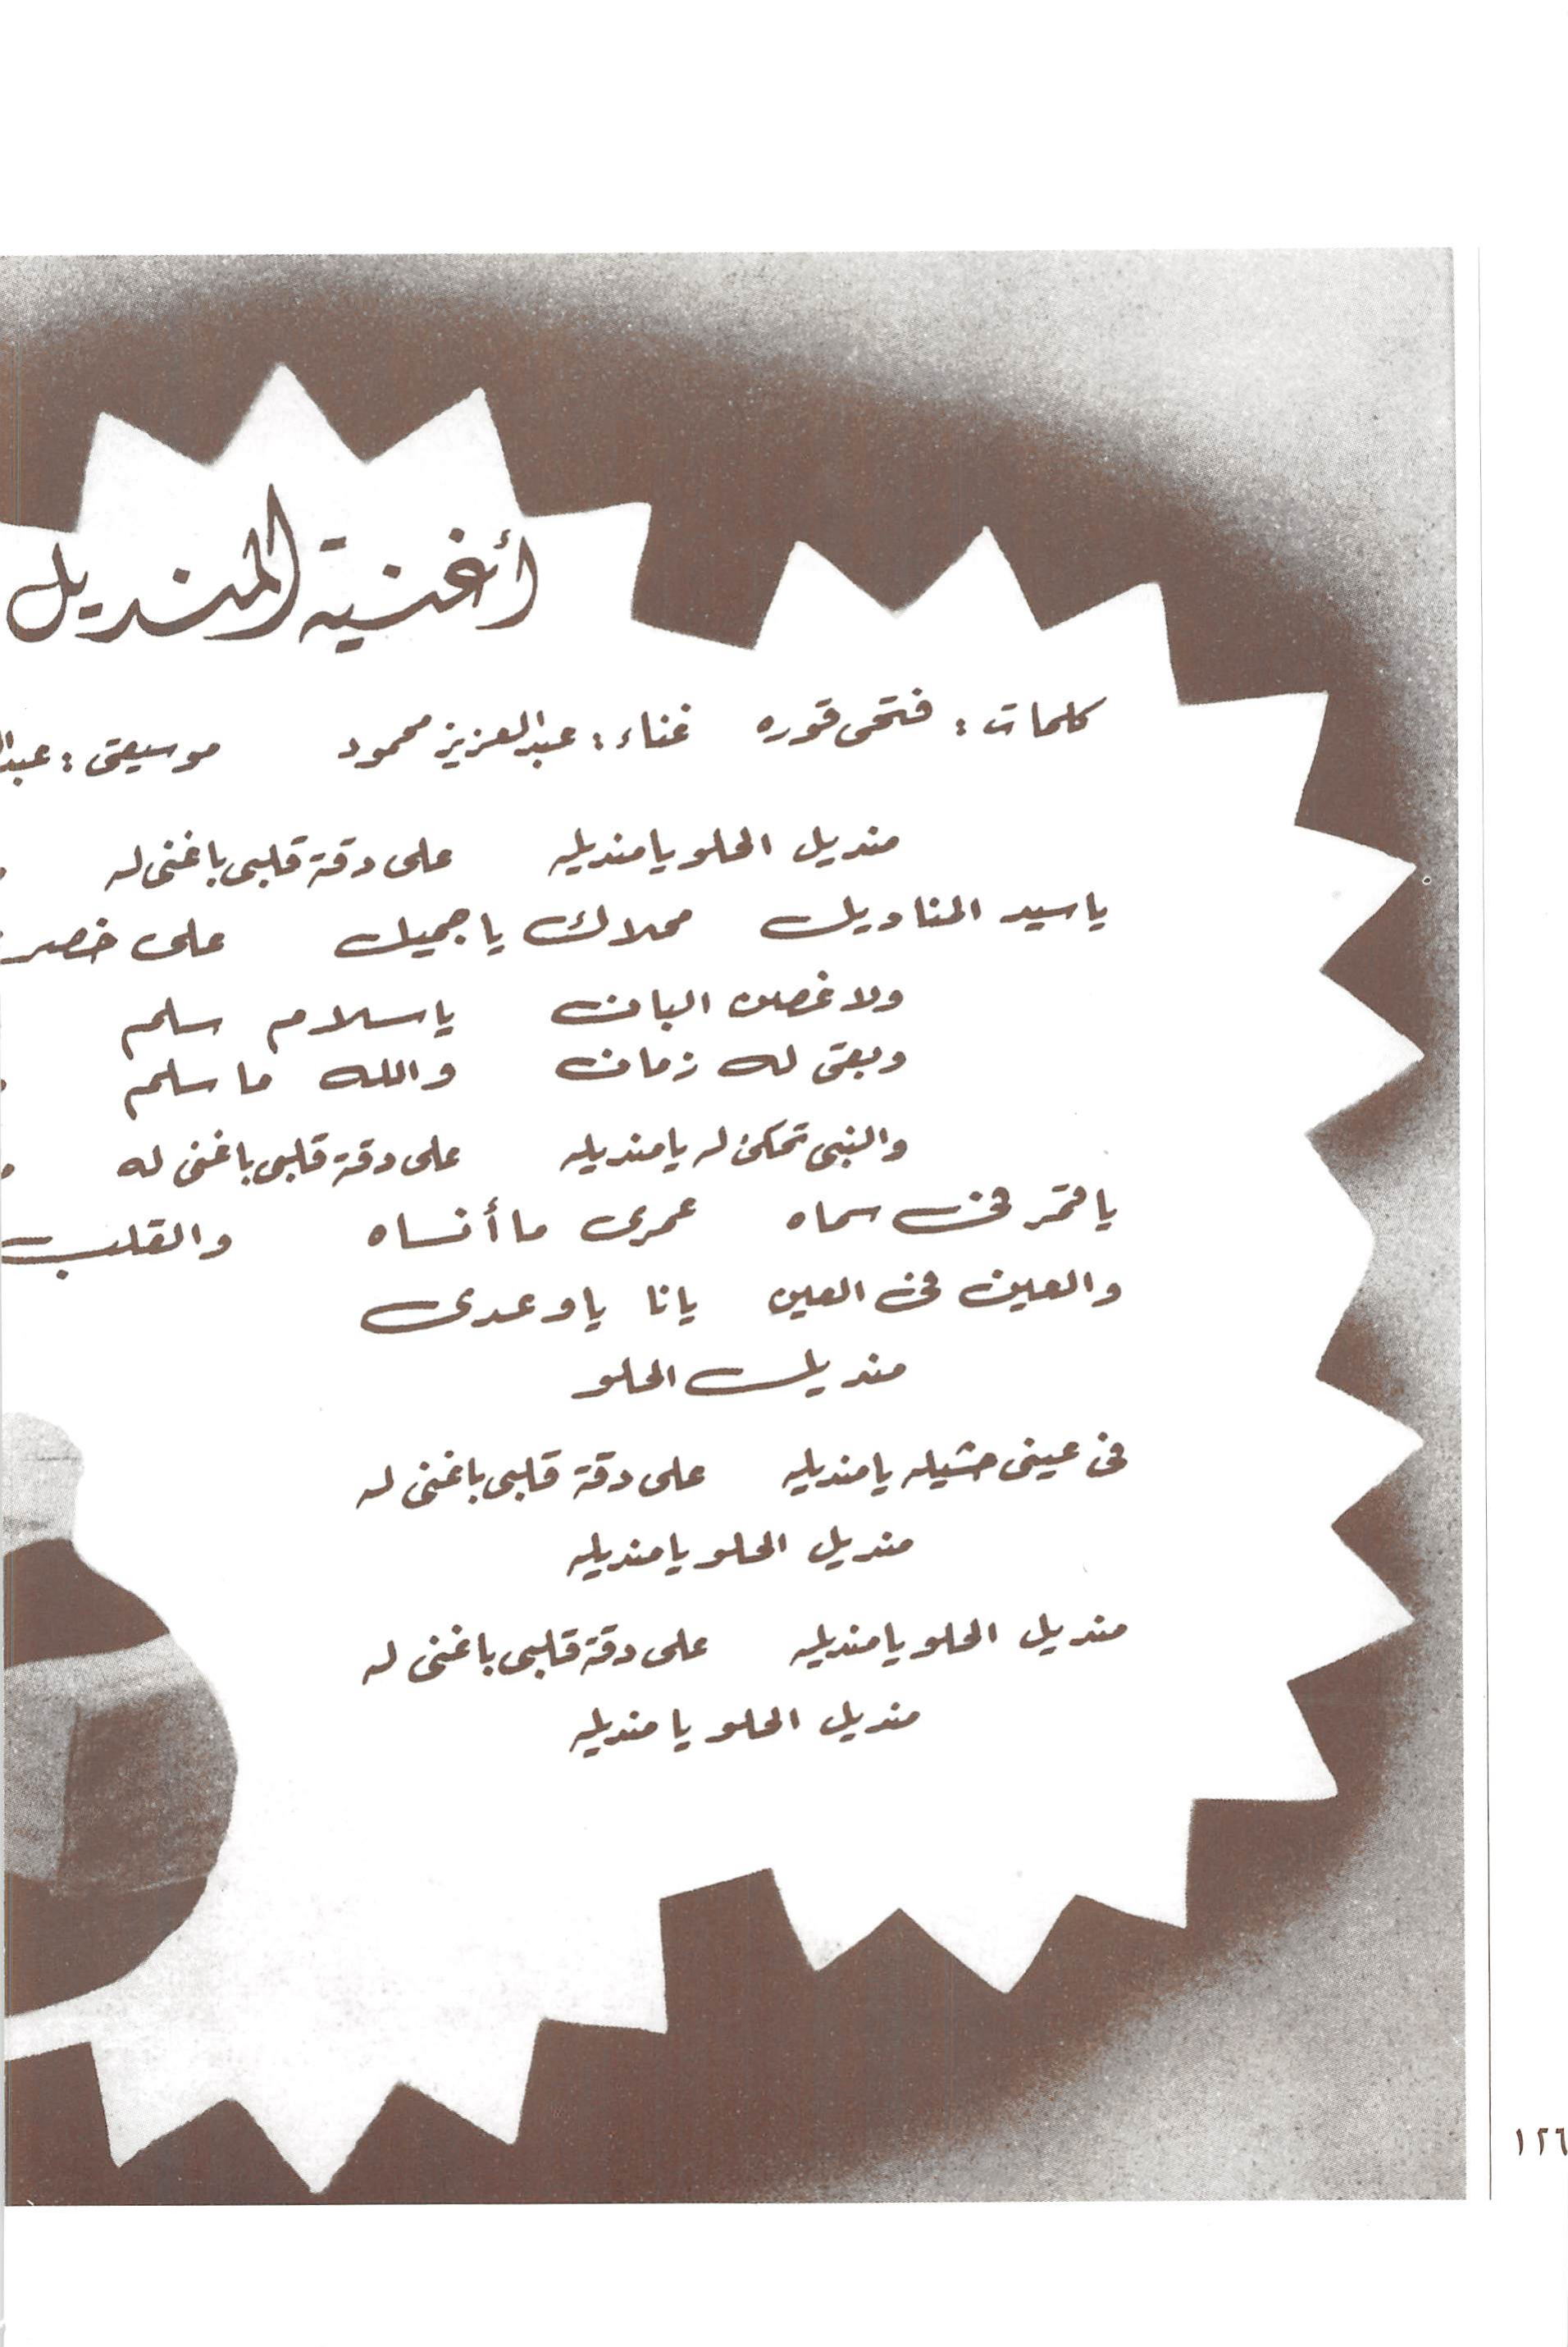 أغنية المنديل
كلمات : فتحى قوره غناء : عبدالعزيز محمود موسيقى :
منديل الحلو يا منديله على دقة قلبى باغنى له
يا سيد المناديل محلاك يا جميل على
ولا غصن البان يا سلام سلم
وبقى له زمان والله ما سلم
والنبى تحكى له يا منديله على دقة قلبى باغنى له
يا قمر فى سماه عمرى ما أنساه والقلب
والعين فى العين يانا يا وعدى
منديل الحلو
فى عينى حشيله يا منديله على دقة قلبى باغنى له
منديل الحلو يا منديله
منديل الحلو يا منديله على دقة قلبى باغنى له
منديل الحلو يا منديله
١٢٦